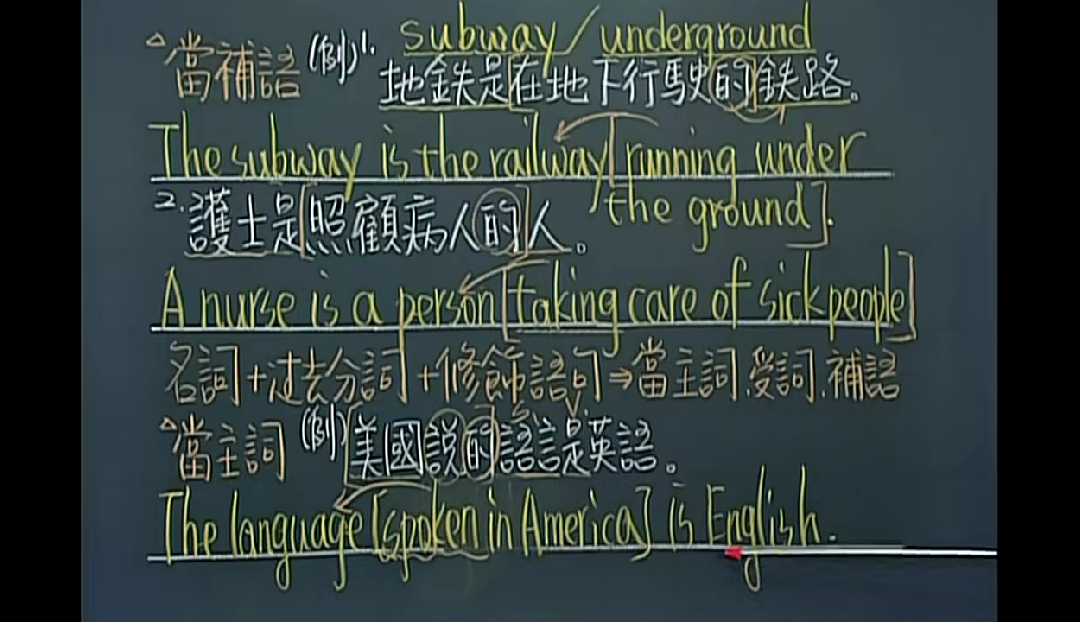 subway/underground
△當補語 (例)1. 地鉄是[在地下行駛的]鉄路。
The subway is the railway [running under
the ground].
2.護士是[照顧病人的]人。
A nurse is a person [taking care of sick people]
名詞+过去分詞+修飾語句⇒當主詞.受詞.補語
S. V.
△當主詞 (例)[美國説的]語言是英語。
The language [spoken in America] is English.